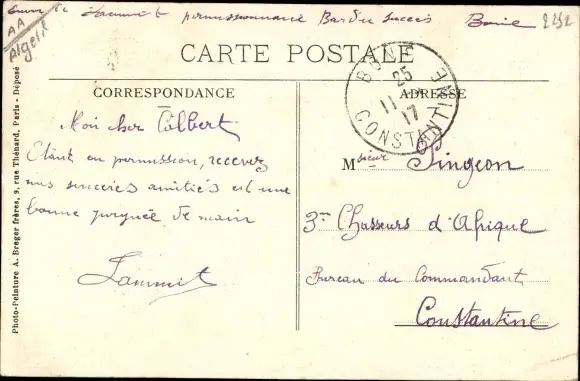 Zammit permissionnaire Bar du succès Bône 2252
AA
Algérie
CARTE POSTALE
CORRESPONDANCE
ADRESSE
BONE
25
11
17
CONSTANTINE
Mon cher Colbert
Etant en permission, recevez
mes sincères amitiés et une
bonne poignée de main
Zammit
Msieur Pingeon
3me Chasseurs d'Afrique
Bureau du Commandant
Constantine
Photo-Peinture A. Breger frères, 9, rue Thénard, Paris - Déposé